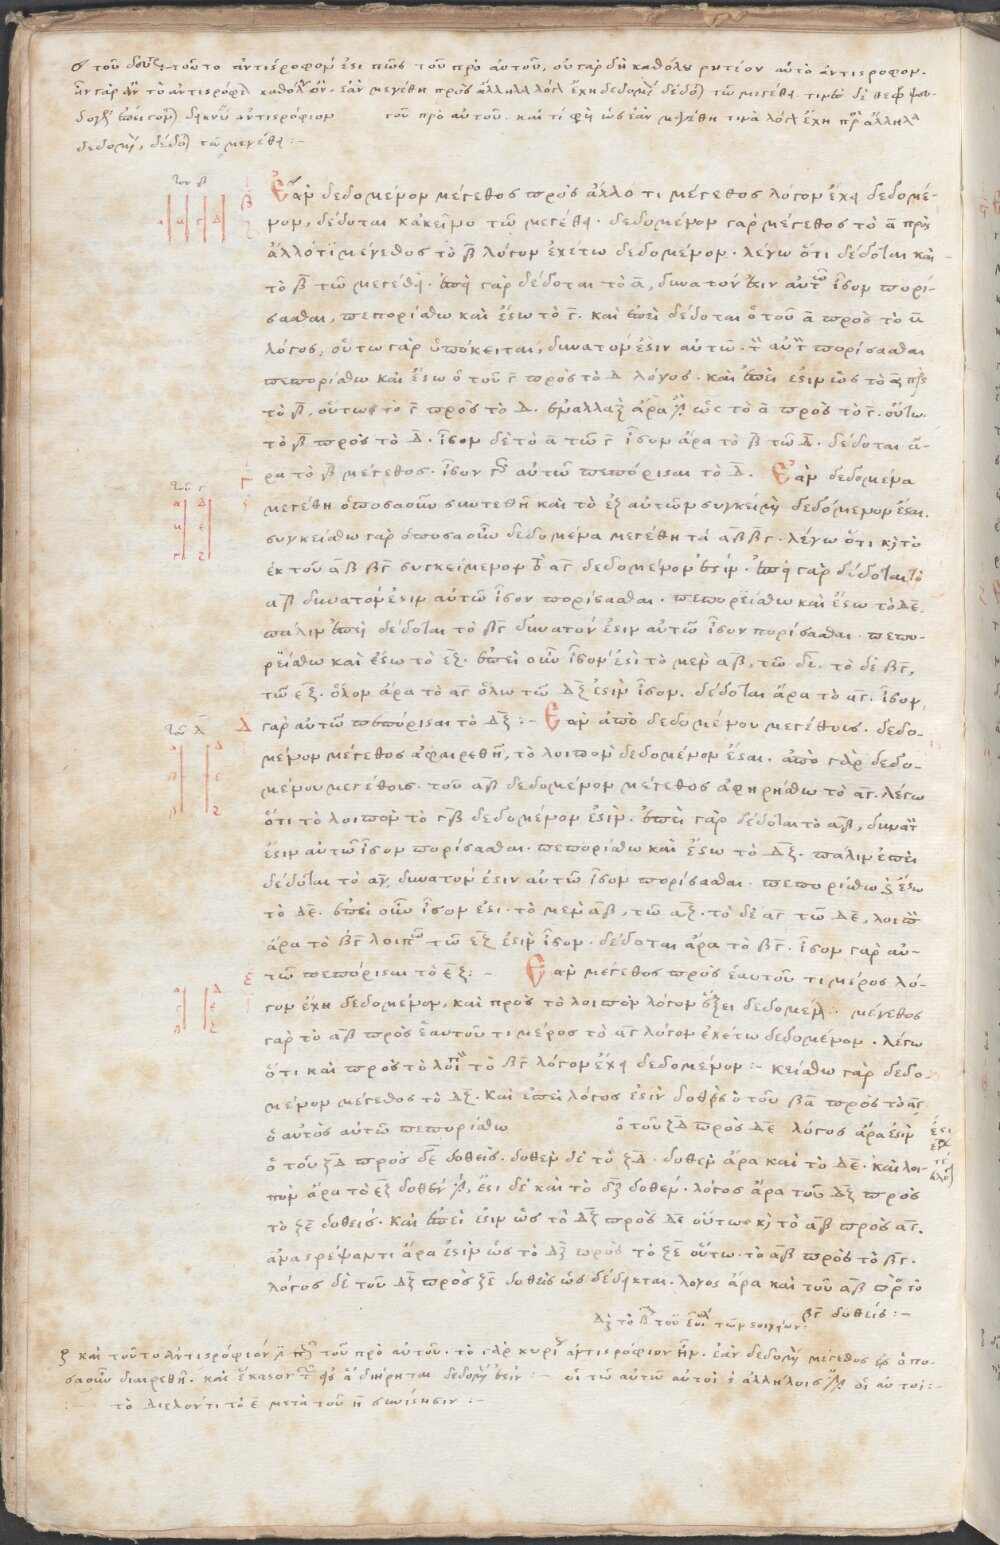 τοῦτο ἀντίστροφόν ἐστι πῶς τοῦ πρὸ αὐτοῦ, οὐ γὰρ δὴ καθόλου ῥητέον αὐτὸ ἀντίστροφον.
ἦν γὰρ ἂν τὸ ἀντίστροφον καθόλου ὄν. ἐὰν μεγέθη πρὸς ἄλληλα λόγον ἔχῃ δεδομένον δέδοται τῷ μεγέθει.
τοῦ πρὸ αὐτοῦ. καὶ τί φησὶ ὡς ἐὰν μεγέθη τινὰ λόγον ἔχῃ πρὸς ἄλληλα
δεδομένον, δέδοται τῷ μεγέθει :-
β
Ἐὰν δεδομένον μέγεθος πρὸς ἄλλο τι μέγεθος λόγον ἔχῃ δεδομέ-
νον, δέδοται κἀκεῖνο τῷ μεγέθει. δεδομένον γὰρ μέγεθος τὸ α πρὸς
ἄλλό τι μέγεθος τὸ β λόγον ἐχέτω δεδομένον. λέγω ὅτι δέδοται καὶ
τὸ β τῷ μεγέθει. ἐπεὶ γὰρ δέδοται τὸ α, δυνατόν ἐστιν αὐτῷ ἴσον πορί-
σασθαι, πεπορίσθω καὶ ἔστω τὸ γ. καὶ ἐπεὶ δέδοται ὁ τοῦ α πρὸς τὸ β
λόγος, οὕτω γὰρ ὑπόκειται, δυνατόν ἐστιν αὐτῷ τὸν αὐτὸν πορίσασθαι
πεπορίσθω καὶ ἔστω ὁ τοῦ γ πρὸς τὸ Δ λόγος. καὶ ἐπεί ἐστιν ὡς τὸ α πρὸς
τὸ β, οὕτως τὸ γ πρὸς τὸ Δ. ἐναλλὰξ ἄρα ἐστὶν ὡς τὸ α πρὸς τὸ γ. οὕτω
τὸ β πρὸς τὸ Δ. ἴσον δὲ τὸ α τῷ γ ἴσον ἄρα τὸ β τῷ Δ. δέδοται ἄ-
ρα τὸ β μέγεθος. ἴσον γὰρ αὐτῷ πεπόρισται τὸ Δ. Ἐὰν δεδομένα
μεγέθη ὁποσαοῦν συντεθῇ καὶ τὸ ἐξ αὐτῶν συγκείμενον δεδόμενον ἔσται.
συγκείσθω γὰρ ὁποσαοῦν δεδομένα μεγέθη τὰ αβ βγ. λέγω ὅτι καὶ τὸ
ἐκ τοῦ αβ βγ συγκείμενον τὸ αγ δεδομένον ἐστίν. ἐπεὶ γὰρ δέδοται τὸ
αβ δυνατόν ἐστιν αὐτῷ ἴσον πορίσασθαι. πεπορίσθω καὶ ἔστω τὸ Δε.
πάλιν ἐπεὶ δέδοται τὸ βγ δυνατόν ἐστιν αὐτῷ ἴσον πορίσασθαι. πεπο-
ρίσθω καὶ ἔστω τὸ εζ. ἐπεὶ οὖν ἴσον ἐστὶ τὸ μὲν αβ, τῷ δε. τὸ δὲ βγ,
τῷ εζ. ὅλον ἄρα τὸ αγ ὅλῳ τῷ Δζ ἐστὶν ἴσον. δέδοται ἄρα τὸ αγ. ἴσον
γὰρ αὐτῷ πεπόρισται τὸ Δζ :- Ἐὰν ἀπὸ δεδομένου μεγέθους. δεδο-
μένον μέγεθος ἀφαιρεθῇ, τὸ λοιπὸν δεδομένον ἔσται. ἀπὸ γὰρ δεδο-
μένου μεγέθους. τοῦ αβ δεδομένον μέγεθος ἀφῃρήσθω τὸ αγ. λέγω
ὅτι τὸ λοιπὸν τὸ γβ δεδομένον ἐστίν. ἐπεὶ γὰρ δέδοται τὸ αβ, δυνατόν
ἐστιν αὐτῷ ἴσον πορίσασθαι. πεπορίσθω καὶ ἔστω τὸ Δζ. πάλιν ἐπεὶ
δέδοται τὸ αγ, δυνατόν ἐστιν αὐτῷ ἴσον πορίσασθαι. πεπορίσθω καὶ ἔστω
τὸ Δε. ἐπεὶ οὖν ἴσον ἐστὶ. τὸ μὲν αβ, τῷ Δζ. τὸ δὲ αγ τῷ Δε, λοιπὸν
ἄρα τὸ βγ λοιπῷ τῷ εζ ἐστὶν ἴσον. δέδοται ἄρα τὸ βγ. ἴσον γὰρ αὐ-
τῷ πεπόρισται τὸ εζ :- Ἐὰν μέγεθος πρὸς ἑαυτοῦ τι μέρος λό-
γον ἔχῃ δεδομένον, καὶ πρὸς τὸ λοιπὸν λόγον ἕξει δεδομένον :· μέγεθος
γὰρ τὸ αβ πρὸς ἑαυτοῦ τι μέρος τὸ αγ λόγον ἐχέτω δεδομένον. λέγω
ὅτι καὶ πρὸς τὸ λοιπὸν τὸ βγ λόγον ἔχει δεδομένον :- κείσθω γὰρ δεδο-
μένον μέγεθος τὸ Δζ. καὶ ἐπεὶ λόγος ἐστὶν δοθεὶς ὁ τοῦ βα πρὸς τὸ αγ
ὁ αὐτὸς αὐτῷ πεπορίσθω ὁ τοῦ ζΔ πρὸς Δε λόγος ἄρα ἐστὶν
ὁ τοῦ ζΔ πρὸς δε δοθείς. δοθὲν δὲ τὸ ζΔ. δοθὲν ἄρα καὶ τὸ Δε. καὶ λοι-
πὸν ἄρα τὸ εζ δοθέν ἐστιν, ἔστι δὲ καὶ τὸ δζ δοθέν. λόγος ἄρα τοῦ Δζ πρὸς
τὸ ζε δοθείς. καὶ ἐπεί ἐστιν ὡς τὸ Δζ πρὸς Δε οὕτως καὶ τὸ αβ πρὸς αγ.
ἀναστρέψαντι ἄρα ἐστὶν ὡς τὸ Δζ πρὸς τὸ ζε οὕτω. τὸ αβ πρὸς τὸ βγ.
λόγος δὲ τοῦ Δζ πρὸς ζε δοθεὶς ὡς δέδεικται. λόγος ἄρα καὶ τοῦ αβ πρὸς τὸ
βγ δοθείς :-
καὶ τοῦτο ἀντιστρόφιόν ἐστι τοῦ πρὸ αὐτοῦ. τὸ γὰρ κυρίως ἀντιστρόφιον ἦν. ἐὰν δεδομένον μέγεθος εἰς ὁπο-
σαοῦν διαιρεθῇ. καὶ ἕκαστον τῶν εἰς ἃ διῄρηται δεδομένον ἐστίν :- οἱ τῷ αὐτῷ αὐτοὶ καὶ ἀλλήλοις εἰσὶν οἱ αὐτοί :-
τὸ διελόντι τὸ ε μετὰ τοῦ η συνίστησιν :-